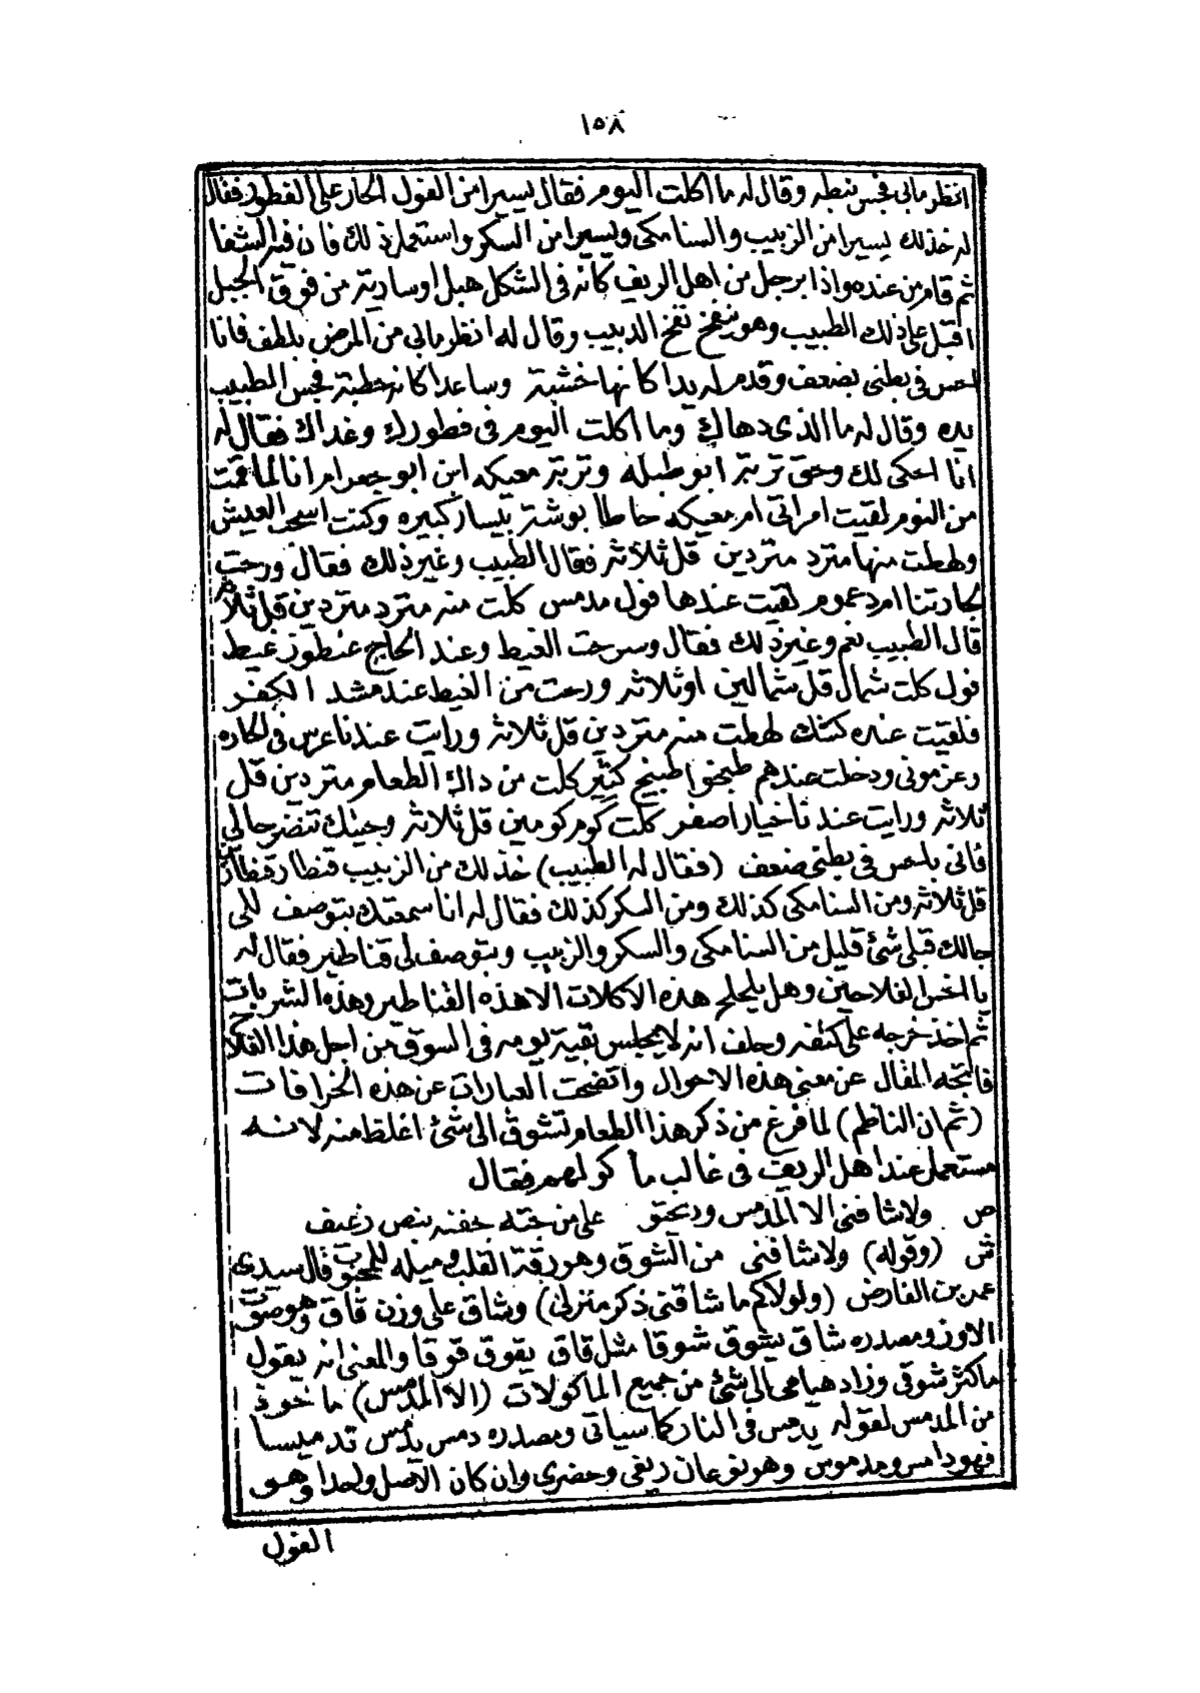 ١٥٨
انظر مابى فجس نبطه وقال له ما اكلت اليوم فقال يسيرا من الفول الحار على الفطور فقال
له خذ لك يسيرا من الزبيب والسنامكى ويسيرا من السكر واستعمل ذلك فان فيه الشفا
ثم قام من عنده واذا برجل من اهل الريف كانه فى الشكل هبل اوسارية من فوق الجبل
اقبل على ذلك الطبيب وهو ينفخ نفخ الدبيب وقال له انظر مابى من المرض بلطف فانا
احس فى بطنى بضعف وقدم له يدا كانها خشبة وساعدا كانه حطبة فجس الطبيب
يده وقال له ما الذى دهاك وما اكلت اليوم فى فطورك وغداك فقال له
انا احكى لك وحق تربة ابو طبله وتربة معيكه ابن ابو جعرامرانا لما قمت
من النوم لقيت امراتى ام معيكه حاطا بوشة بيسار كبيره وكنت اسحر العيش
ولهطت منها مترد متردين قل ثلاثه فقال الطبيب وغير ذلك فقال ورحت
لجارتنا ام دعموم لقيت عندها فول مدمس كلت منه مترد متردين قل ثلاثه
قال الطبيب نعم وغير ذلك فقال وسرحت الغيط وعند الحاج عنطوز غيط
فول كلت شمال قل شمالين او ثلاثه ورحت من الغيط عند مشد الكفر
فلقيت عنده كشك لهطت منه متردين قل ثلاثه ورايت عندنا عرس فى الحاره
وعزمونى ودخلت عندهم طبخوا طبيخ كثير كلت من داك الطعام متردين قل
ثلاثه ورايت عندنا خيار اصفر كلت كوم كومين قل ثلاثه وجيتك تنضر حالى
فانى باحس فى بطنى ضعف (فقال له الطبيب) خذ لك من الزبيب قنطار قنطارين
قل ثلاثه ومن السنامكى كذلك ومن السكر كذلك فقال له انا سمعتك بتوصف للى
جالك قبلى شئ قليل من السنامكى والسكر والزبيب وبتوصف لى قناطير فقال له
يا اخس الفلاحين وهل يلحلح هذه الاكلات الا هذه القناطير وهذه الشربات
ثم اخذ خرجه على كتفه وحلف انه لا يجلس بقية يومه فى السوق من اجل هذا الفلاح
فاتجه المقال عن معنى هذه الاحوال واتضحت العبارات عن هذه الخرافات
(ثم ان الناظم) لما فرغ من ذكر هذا الطعام تشوق الى شئ اغلظ منه لانه
مستعمل عند اهل الريف فى غالب ما كولهم فقال
ص ولا شاقنى الا المدمس وريحتو على من جته جفنه بنص رغيف
ش (وقوله) ولا شاقنى من الشوق وهو رقة القلب وميله للمحبوب قال سيدى
عمر بن الفارض (ولولاكم ما شاقنى ذكر منزل) وشاق على وزن قاق وهو صوت
الاوز ومصدره شاق يشوق شوقا مثل قاق يقوق قوقا والمعنى انه يقول
ما كثر شوقى وزاد هيامى الى شئ من جميع الماكولات (الا المدمس) ماخوذ
من المدمس لقوله يدمس فى النار كما سياتى ومصدره دمس يدمس تدميسا
فهو دامس ومدموس وهو نوعان ريفى وحضرى وان كان الاصل واحدا وهو
الفول